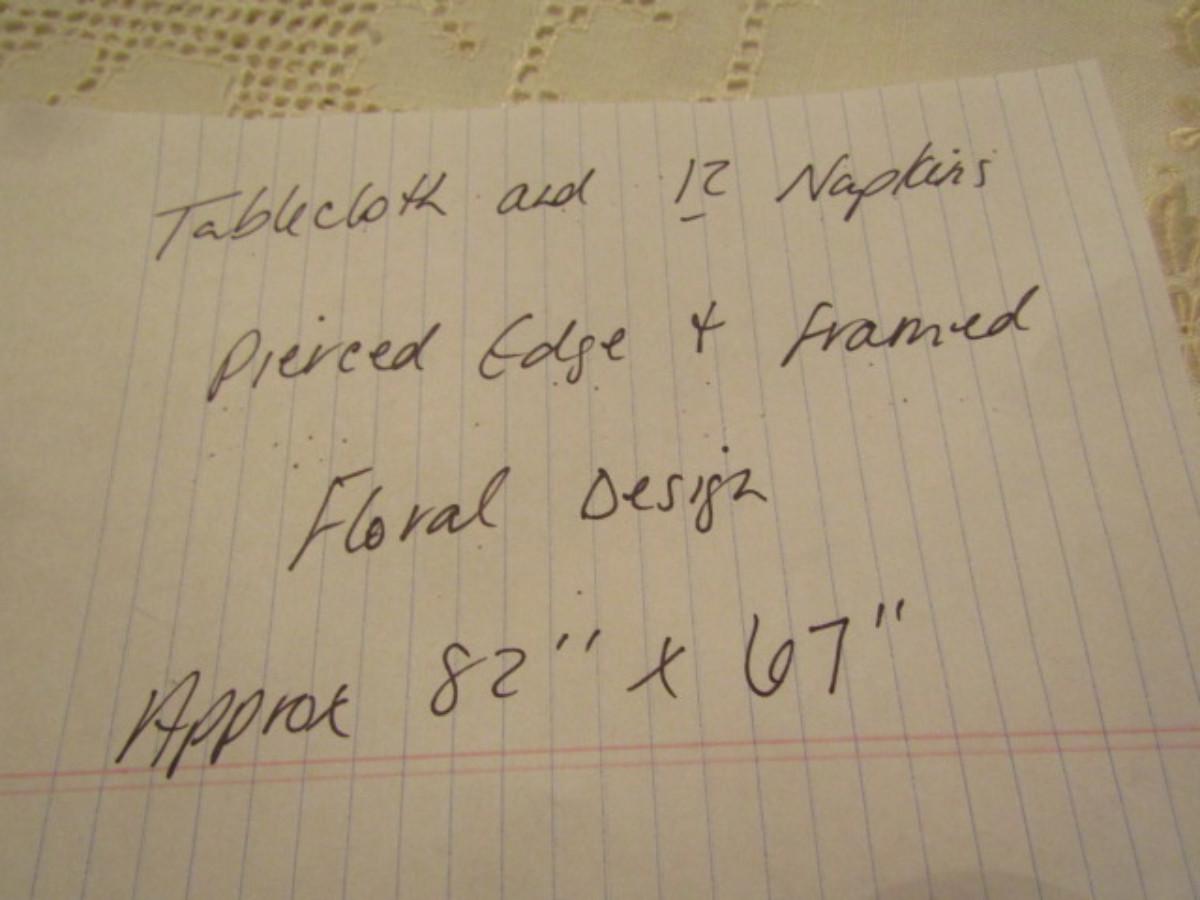 Tablecloth and 12 Napkins
Pierced Edge + Framed
Floral Design
Approx 82" x 67"